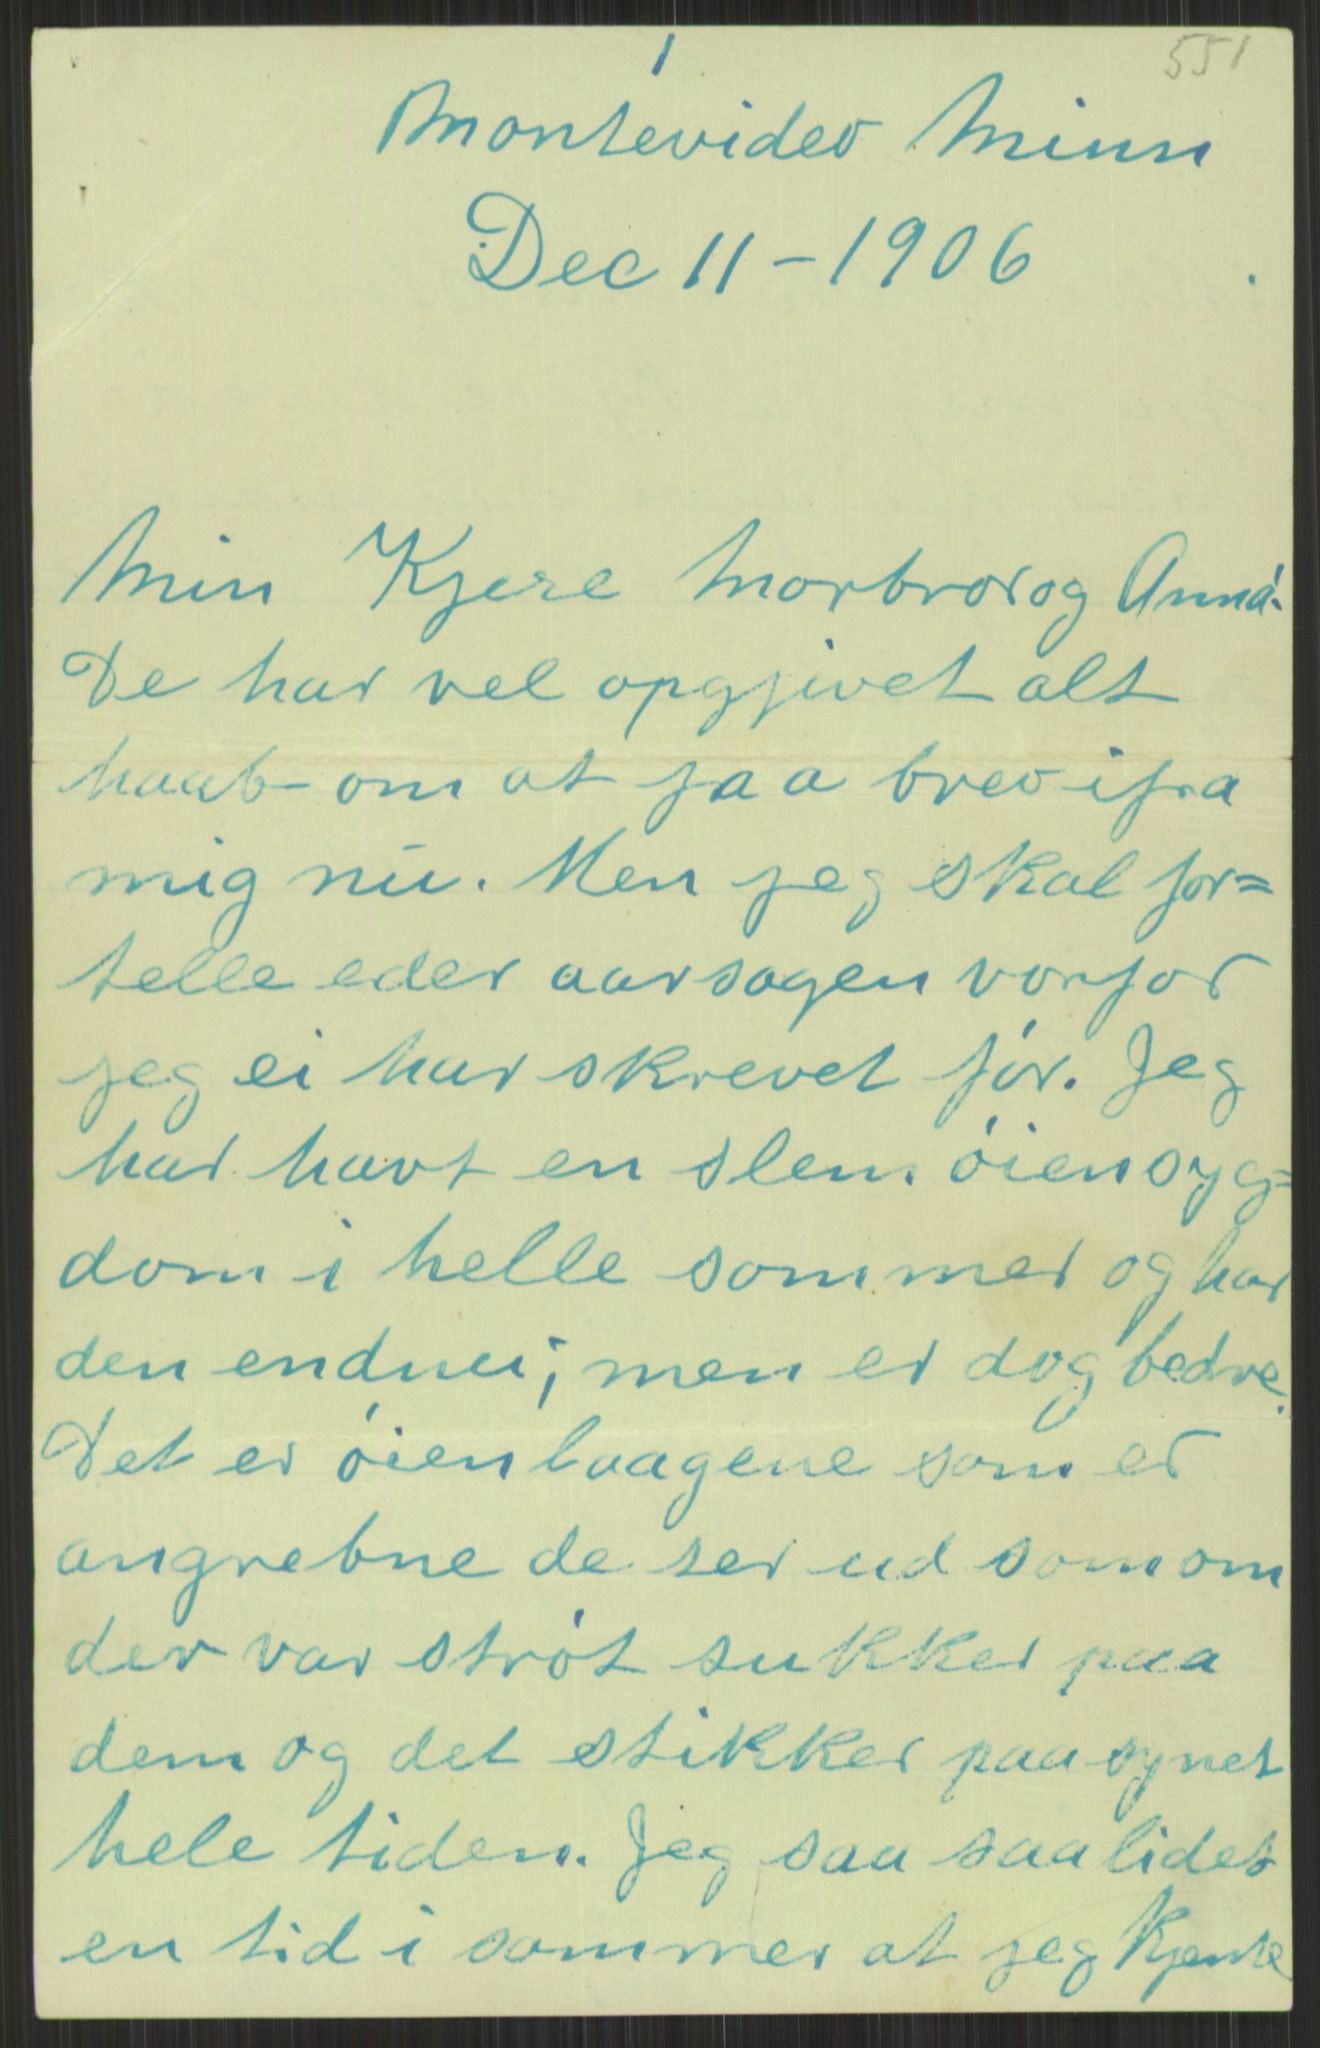 1
551
Montevideo Minn
Dec 11-1906
Min Kjere Morbror og Anna.
De har vel opgjivet alt
haab om at faa brev ifra
mig nu. Men jeg skal for=
telle eder aarsagen vorfor
jeg ei har skrevet før. Jeg
har havt en slem øiensyg=
dom i helle sommer og har
den endnu; men er dog bedre.
Det er øienlaagene som er
angrebne de ser ud som om
der var strøt sukker paa
dem og det stikker paa synet
hele tiden. Jeg saa saa lidet
en tid i sommer at jeg kjente